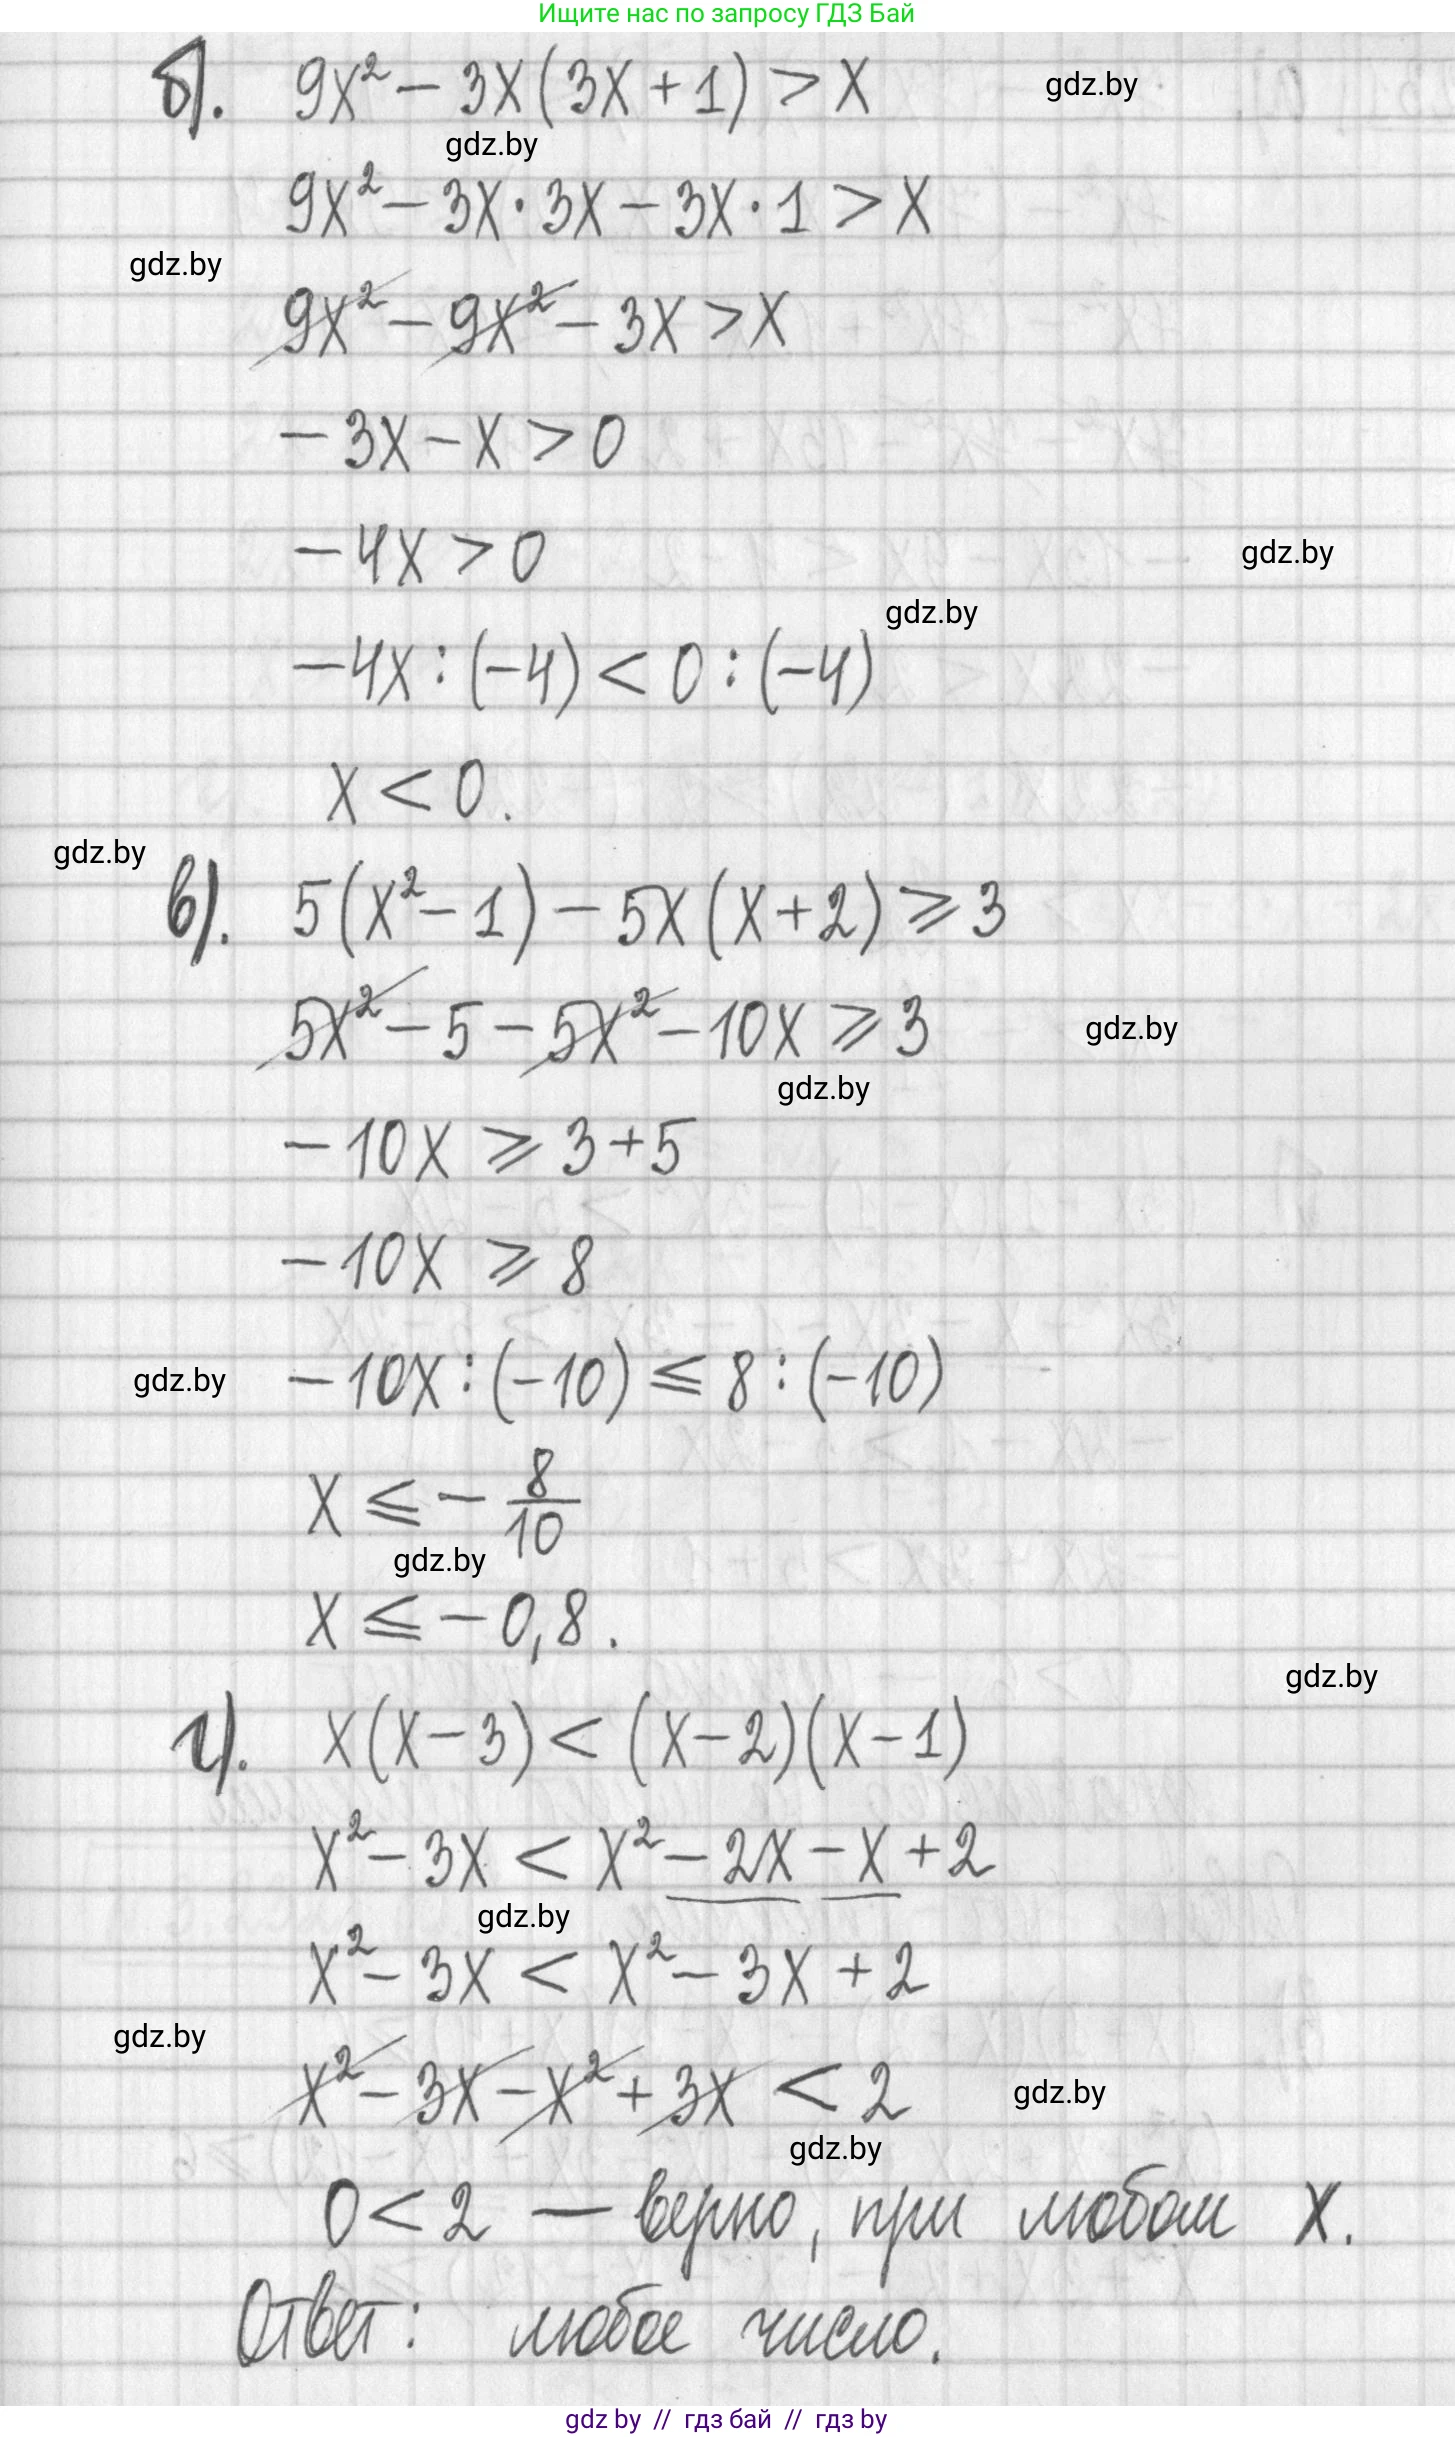 Ищите нас по запросу ГДЗ Бай
б). 9x² - 3x(3x + 1) > x
gdz.by
gdz.by
9x² - 3x · 3x - 3x · 1 > x
gdz.by
9x² - 9x² - 3x > x
-3x - x > 0
-4x > 0
gdz.by
gdz.by
-4x : (-4) < 0 : (-4)
x < 0.
gdz.by
в). 5(x² - 1) - 5x(x + 2) ⩾ 3
5x² - 5 - 5x² - 10x ⩾ 3
gdz.by
gdz.by
-10x ⩾ 3 + 5
-10x ⩾ 8
gdz.by
-10x : (-10) ⩽ 8 : (-10)
x ⩽ - 8/10
gdz.by
x ⩽ -0,8.
gdz.by
г). x(x - 3) < (x - 2)(x - 1)
x² - 3x < x² - 2x - x + 2
gdz.by
x² - 3x < x² - 3x + 2
gdz.by
x² - 3x - x² + 3x < 2
gdz.by
gdz.by
0 < 2 — верно, при любом x.
Ответ: любое число.
gdz by // гдз бай // гдз by